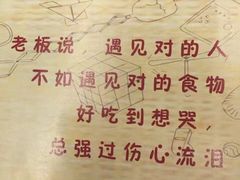 老板说，遇见对的人
不如遇见对的食物
好吃到想哭，
总强过伤心流泪